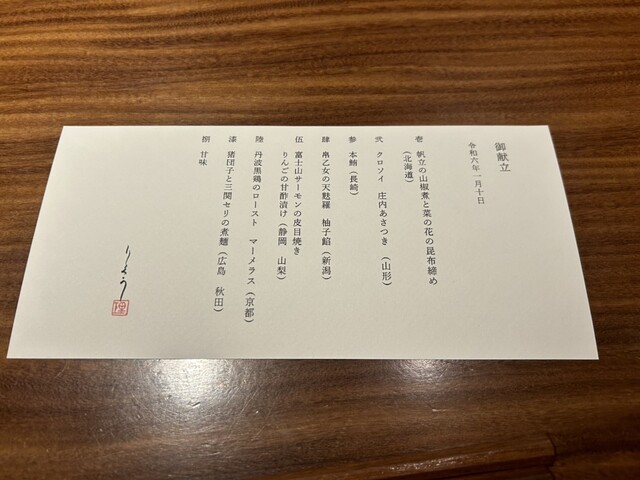 御献立
令和六年一月十日
壱 帆立の山椒煮と菜の花の昆布締め
(北海道)
弐 クロソイ 庄内あさつき (山形)
参 本鮪 (長崎)
肆 帛乙女の天麩羅 柚子餡 (新潟)
伍 富士山サーモンの皮目焼き
りんごの甘酢漬け (静岡 山梨)
陸 丹波黒鶏のロースト マーメラス (京都)
漆 猪団子と三関セリの煮麺 (広島 秋田)
捌 甘味
りょう